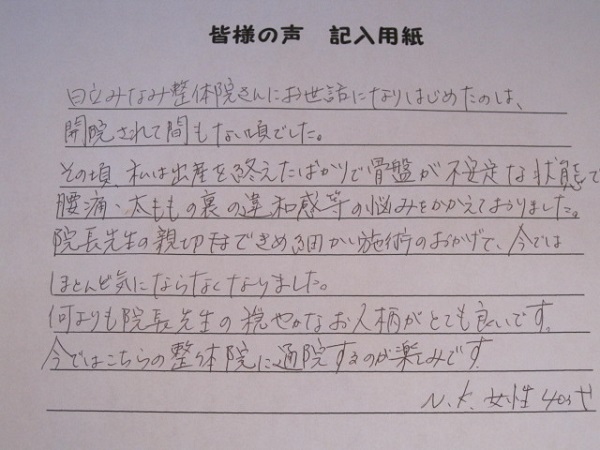 皆様の声　記入用紙
日立みなみ整体院さんにお世話になりはじめたのは、
開院されて間もない頃でした。
その頃、私は出産を終えたばかりで骨盤が不安定な状態で
腰痛・太ももの裏の違和感等の悩みをかかえておりました。
院長先生の親切なきめ細かい施術のおかげで、今では
ほとんど気にならなくなりました。
何よりも院長先生の穏やかなお人柄がとても良いです。
今ではこちらの整体院に通院するのが楽しみです。
N.K. 女性 40才